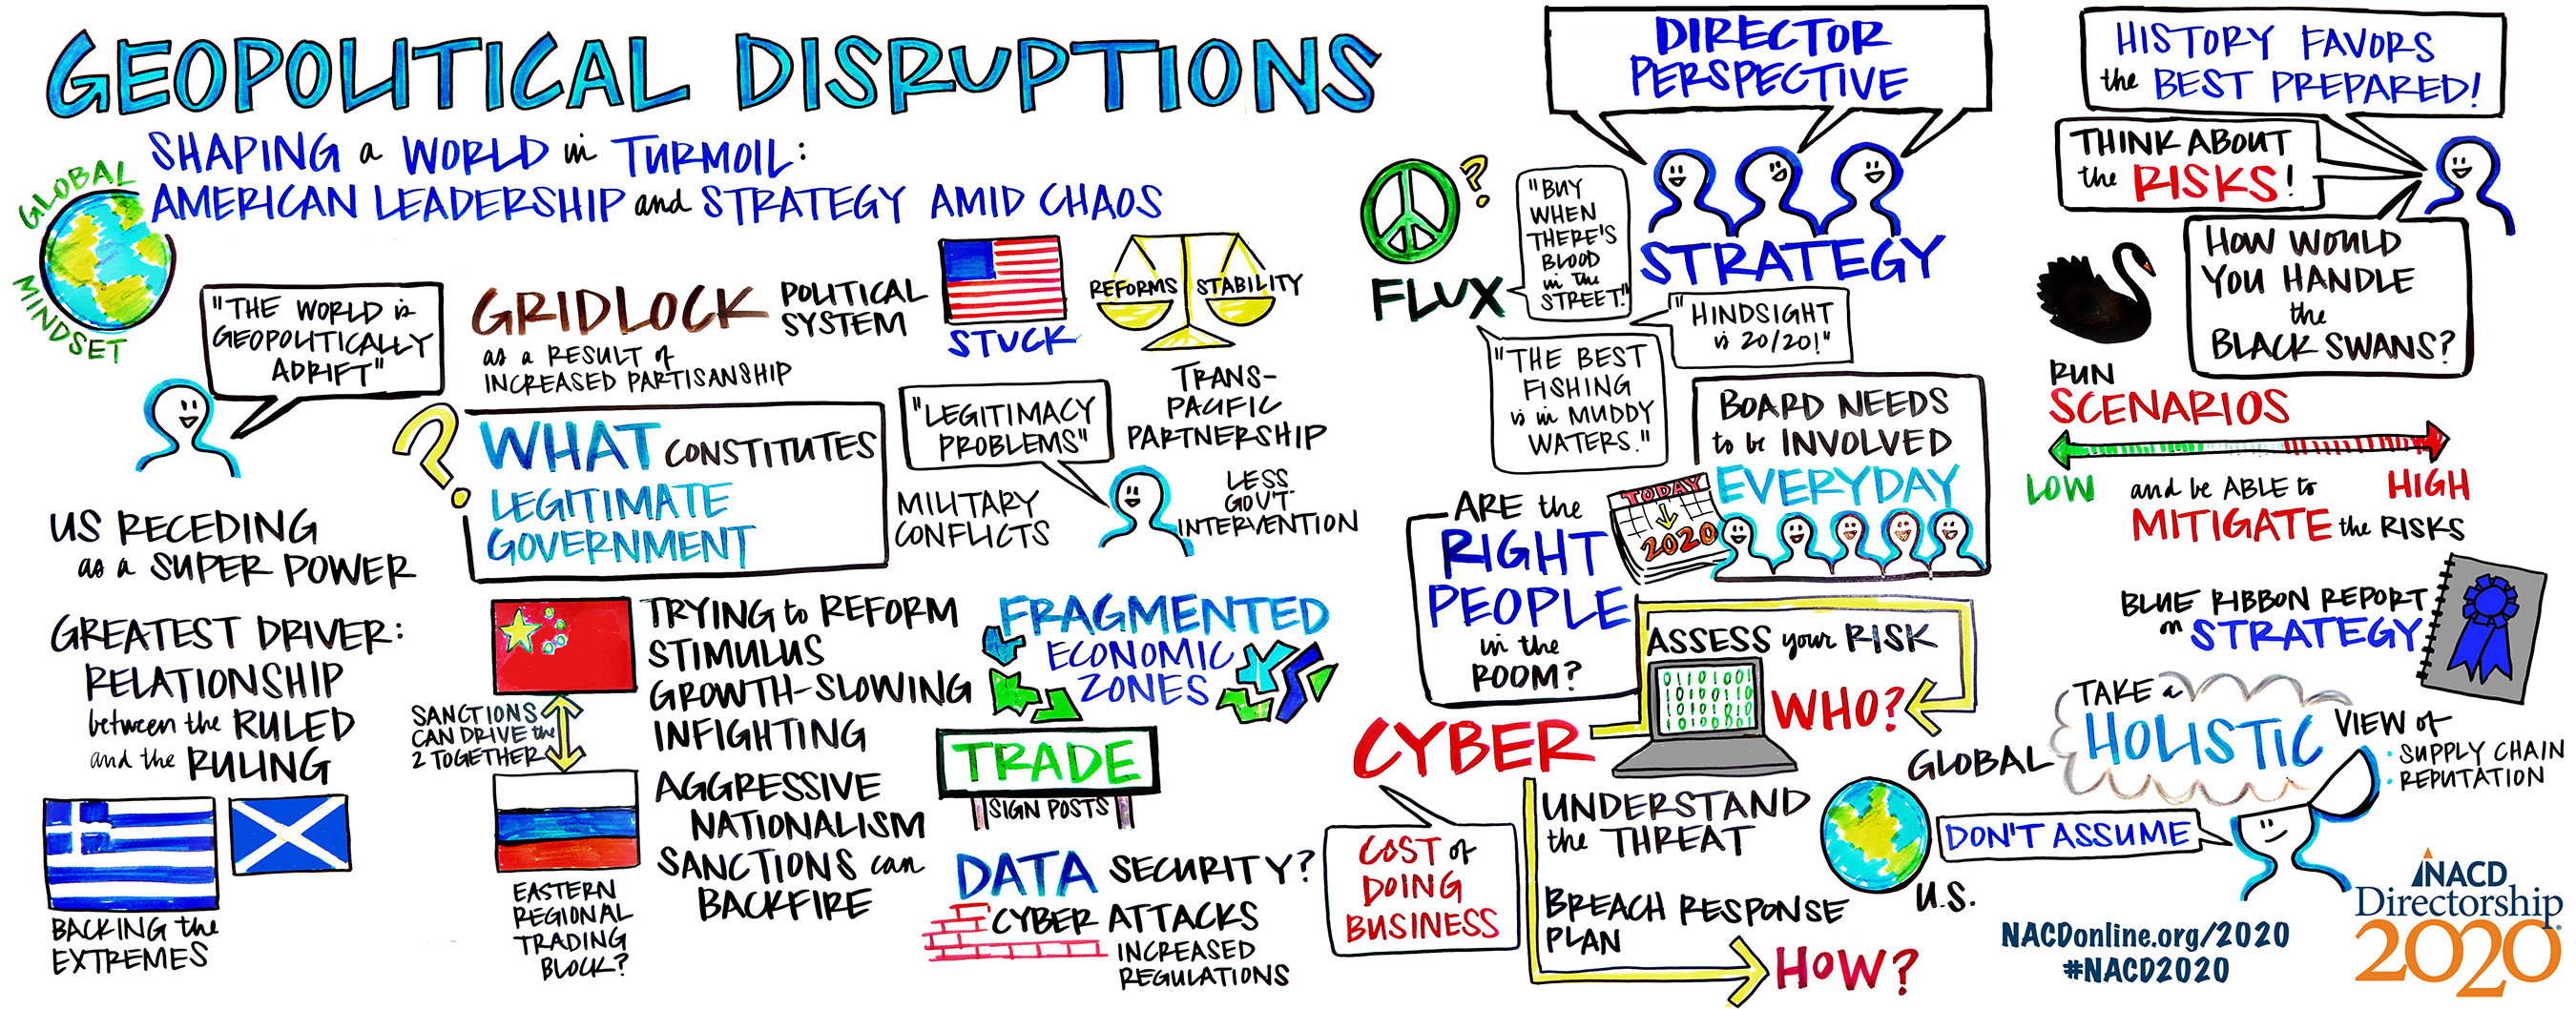 GEOPOLITICAL DISRUPTIONS
SHAPING a WORLD in TURMOIL:
AMERICAN LEADERSHIP and STRATEGY AMID CHAOS
GLOBAL
MINDSET
"THE WORLD is
GEOPOLITICALLY
ADRIFT"
US RECEDING
as a SUPER POWER
GREATEST DRIVER:
RELATIONSHIP
between the RULED
and the RULING
BACKING the
EXTREMES
GRIDLOCK
POLITICAL
SYSTEM
as a RESULT of
INCREASED PARTISANSHIP
STUCK
REFORMS STABILITY
?
WHAT CONSTITUTES
LEGITIMATE
GOVERNMENT
"LEGITIMACY
PROBLEMS"
TRANS-
PACIFIC
PARTNERSHIP
MILITARY
CONFLICTS
LESS
GOV'T
INTERVENTION
TRYING to REFORM
STIMULUS
GROWTH-SLOWING
INFIGHTING
SANCTIONS
CAN DRIVE the
2 TOGETHER
AGGRESSIVE
NATIONALISM
SANCTIONS can
BACKFIRE
EASTERN
REGIONAL
TRADING
BLOCK?
FRAGMENTED
ECONOMIC
ZONES
TRADE
SIGN POSTS
DATA SECURITY?
CYBER ATTACKS
INCREASED
REGULATIONS
DIRECTOR
PERSPECTIVE
STRATEGY
?
FLUX
"BUY
WHEN
THERE'S
BLOOD
in the
STREET."
"HINDSIGHT
is 20/20!"
"THE BEST
FISHING
is in MUDDY
WATERS."
BOARD NEEDS
to be INVOLVED
EVERYDAY
TODAY
2020
ARE the
RIGHT
PEOPLE
in the
ROOM?
ASSESS your RISK
01101001
01010110
10101101
10100801
WHO?
CYBER
COST of
DOING
BUSINESS
UNDERSTAND
the THREAT
BREACH RESPONSE
PLAN
HOW?
HISTORY FAVORS
the BEST PREPARED!
THINK ABOUT
the RISKS!
HOW WOULD
YOU HANDLE
the
BLACK SWANS?
RUN
SCENARIOS
LOW
HIGH
and be ABLE to
MITIGATE the RISKS
BLUE RIBBON REPORT
on STRATEGY
TAKE a
HOLISTIC
VIEW of
: SUPPLY CHAIN
REPUTATION
GLOBAL
U.S.
DON'T ASSUME
NACDonline.org/2020
#NACD2020
NACD
Directorship
2020